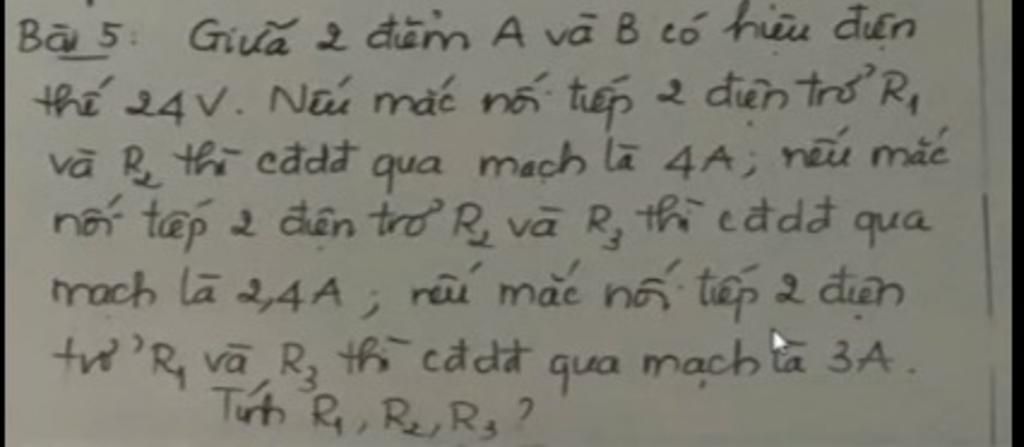 Bài 5: Giữa 2 điểm A và B có hiệu điện
thế 24V. Nếu mắc nối tiếp 2 điện trở R₁
và R₂ thì cđdđ qua mạch là 4A; nếu mắc
nối tiếp 2 điện trở R₂ và R₃ thì cđdđ qua
mạch là 2,4A; nếu mắc nối tiếp 2 điện
trở R₁ và R₃ thì cđdđ qua mạch là 3A.
Tính R₁, R₂, R₃?